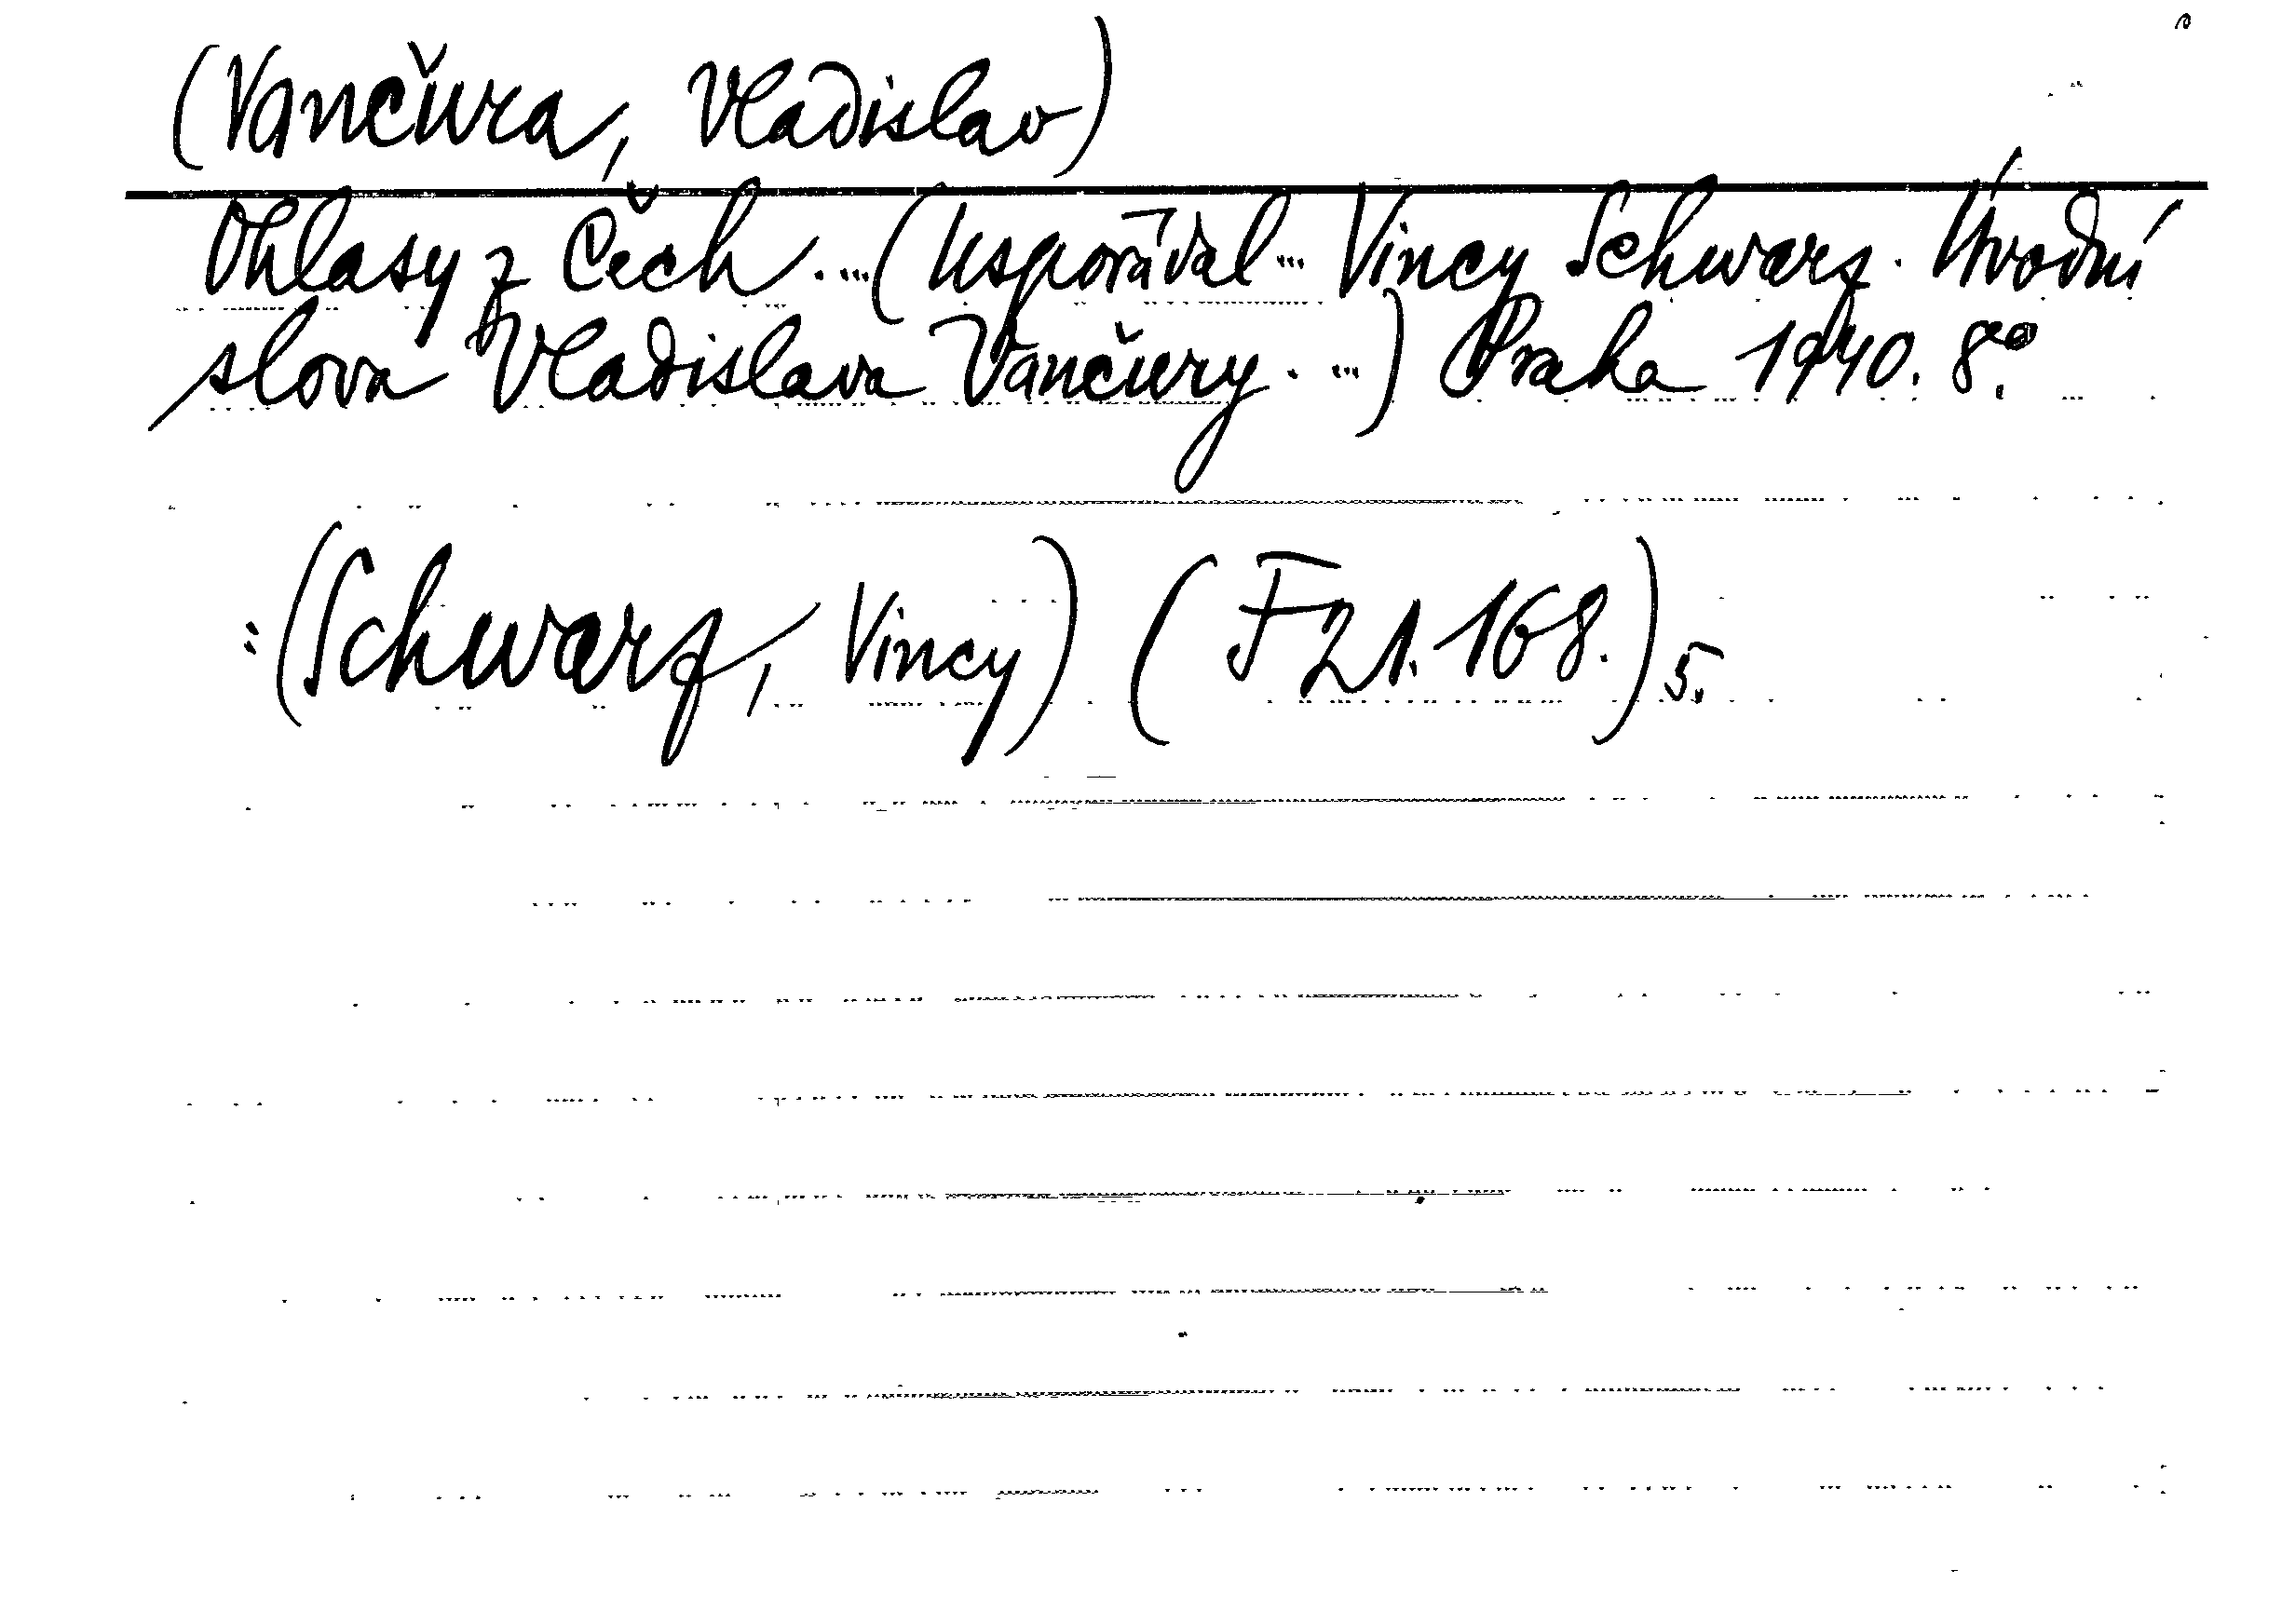 (Vančura, Vladislav)
Ohlasy z Čech. ... (Uspořádal ... Vincy Schwarz. Úvodní
slova Vladislava Vančury. ...) Praha 1940. 8°.
: (Schwarz, Vincy) (F 21.168.) 5.